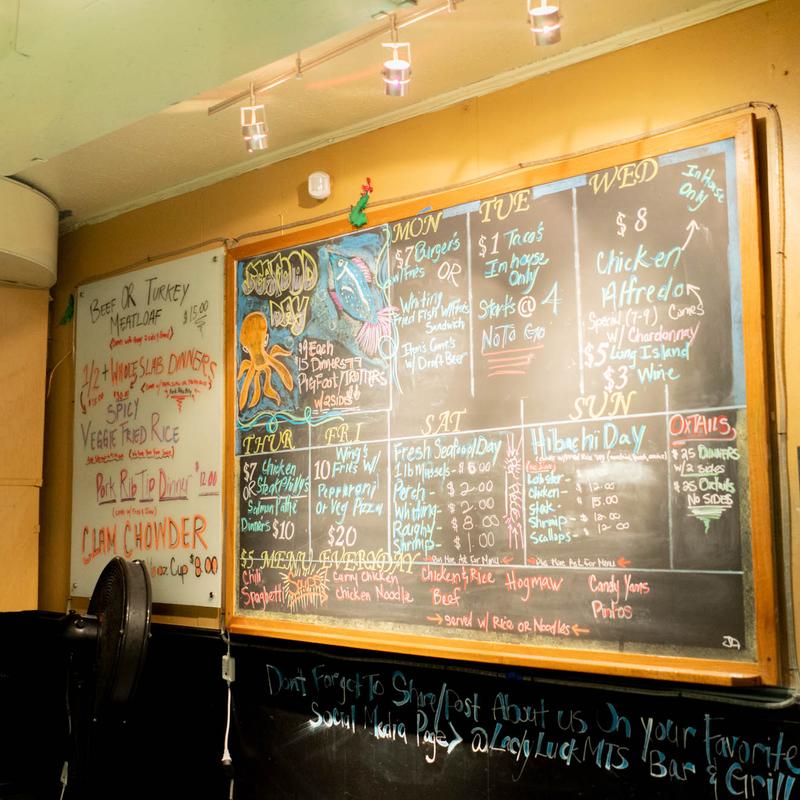 BEEF OR TURKEY
MEATLOAF $15.00
1/2 + WHOLE SLAB DINNERS
SPICY
VEGGIE FRIED RICE
Pork Rib Tip Dinner $12.00
CLAM CHOWDER
Cup $8.00
SEAFOOD
DAY
Each
Dinners
Pig Foot/Trotters
w/2 sides
MON
$7 Burger's
w/Fries OR
Whiting
Fried Fish w/Fries
Sandwich
Item's Come's
w/ Draft Beer
TUE
$1 Taco's
In house
Only
Starts @ 4
No To Go
WED
In House
Only
$8
Chicken
Alfredo
Special (7-9) Comes
w/ Chardonnay
$5 Long Island
$3 Wine
THUR
$7 Chicken
OR Steak Philly's
Salmon Pattie
Dinners $10
FRI
10 Wing's
Fries w/
Pepperoni
or Veg Pizza
$20
SAT
Fresh Seafood Day
1 lb Mussels-
Perch- $2.00
Whiting- $2.00
Roughy- $8.00
Shrimp- $1.00
But Not Ask For Menu
SUN
Hibachi Day
Lobster-
Chicken-
Steak- 15.00
Shrimp- $12.00
Scallops- 12.00
OXTAILS
$25 DINNERS
w/2 sides
$25 Oxtails
No SIDES
$5 MENU EVERYDAY
Chili
Spaghetti
Curry Chicken
Chicken Noodle
Chicken & Rice
Beef
Hogmaw
Candy Yams
Pintos
served w/ Rice or Noodles
Don't Forget To Share/post About us On Your Favorite
Social Media Page> @LadyLuckMTS Bar & Grill